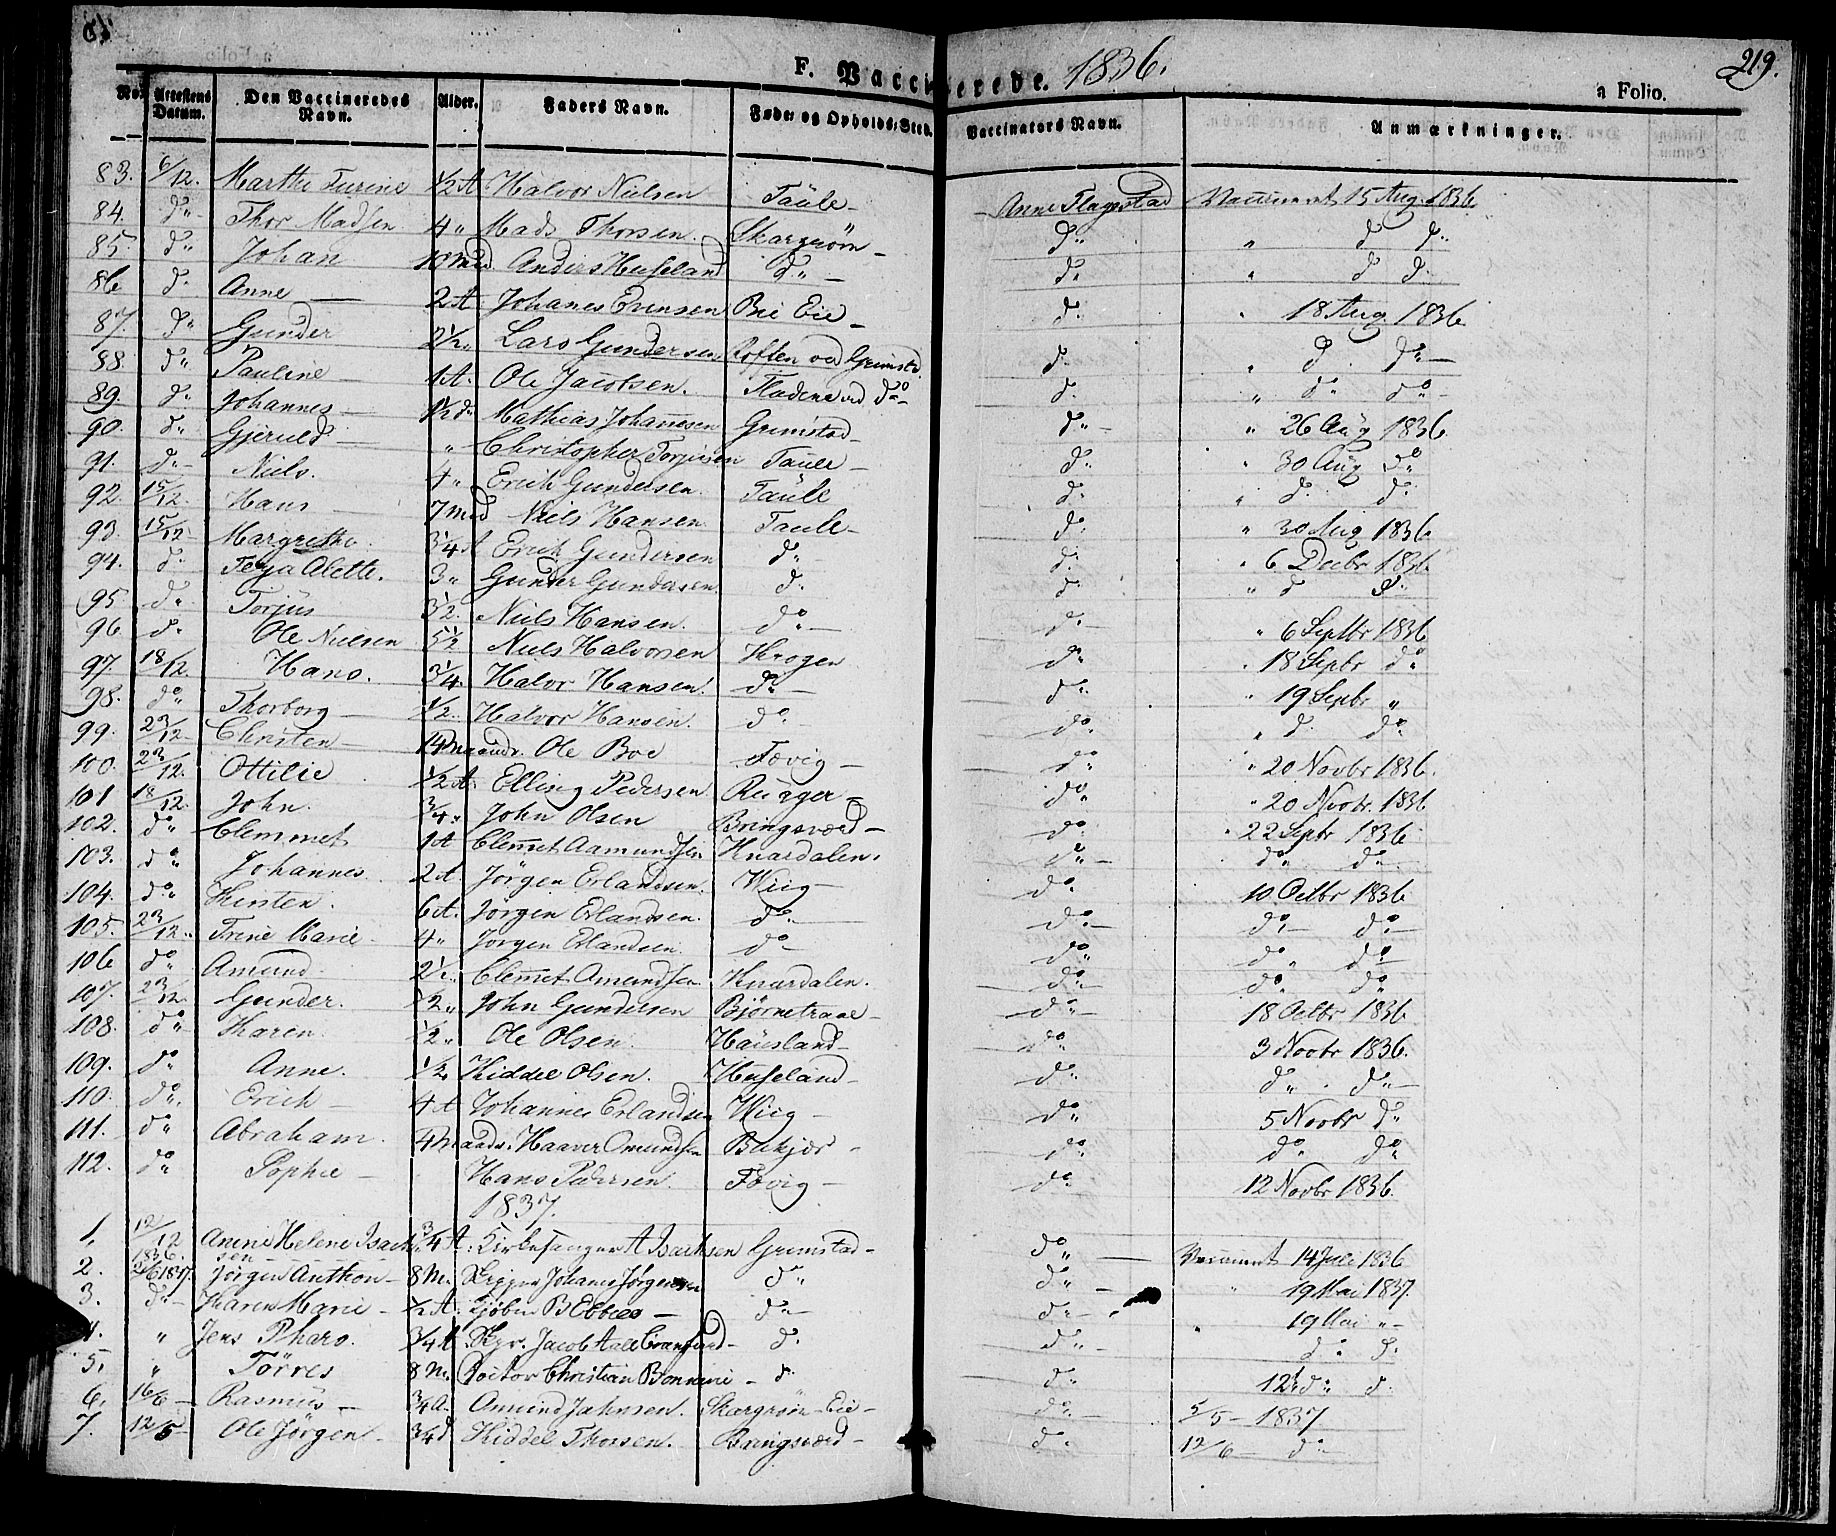 F. Vaccinerede. 1836.
219.
a Folio.
No. Attestens Datum. Den Vaccineredes Navn. Alder. Faders Navn. Føde- og Opholds-Sted. Vaccinators Navn. Anmærkninger.
83. 6/12. Marthe Turine 1/2 A Halvor Nielsen Taule - Anne Flagestad Vaccineret 15 Aug. 1836
84. d" Thor Madsen 4 " Mads Thorsen. Skarprøm d" " d d"
85. d" Johan 10 Md. Anders Huseland d" d" " d d.
86 d. Anne 2 A. Johanes Evensen Bie Eie d. " 18 Aug. 1836
87. d" Gunder 2 1/2 " Lars Gundersen ved Grimstd. d. " d. d"
88. d" Pauline 1 A. Ole Jacobsen. Fladene ved do d. " d" do
89. d. Johannes 1 1/2 d" Mathias Johannesen Grimstad d" " 26 Aug 1836
90. d" Gjeruld " Christopher Torjusen Taule d. " 30 Aug do
91. d" Niels. 4 " Erich Gundersen. Taule d. " d. d.
92. 15/12. Hans 7 Md Niels Hansen Taule d. " 30 Aug 1836
93 15/12. Margrethe. 3/4 A Erich Gundersen d" d. " 6 Decbr 1836
94. d. Terja Alette. 3 " Gunder Gundersen. d. d. " d d"
95 d. Torjus 3 1/2. Niels Hansen. do d. " 6 Septbr 1836
96 d. Ole Nielsen 5 1/2 Niels Halvorsen Krogen d" " 18 Sepbr do
97. 18/12. Hans. 3/4. Halvor Hansen. do d" " 19 Sepbr "
98. do Thorborg 1/2. Halvor Hansen. do do " d. do
99. 23/12 Christen 14 Maandr. Ole Boe Fevig do " 20 Novbr 1836.
100. 23/12. Ottilie 1/2 A. Elling Pedersen Rugger do " 20 Novbr. 1836
101 18/12. John. 3/4 " John Olsen Bringsværd do " 22 Sepbr 1836
102. do Clemmet 1 A Clemet Aamundsen Knardalen. do do do
103. do Johannes 2 A. Jörgen Erlandsen. Wiig do 10 Octbr 1836
104. do Kirsten. 6 A. Jörgen Erlandsen. do do do do
105. 23/12. Trine Marie 4 " Jörgen Erlandsen. do do do do
106 do Amund. 2 1/2. Clemet Amundsen Knardalen. do do do
107. 23/12. Gunder. 1/2 " John Gundersen Bjørnetraae do 18 Octbr 1836
108. do Karen. 1/2 " Ole Olsen Hausland do 3 Novbr 1836.
109. do Anne. 1/2 Kiddel Olsen. Huseland do do do
110. do Erich 4 A Johannes Erlandsen Wiig do 5 Novbr do
111. do Abraham. 4 Maadr. Haaver Omundsen Bekjær do do do
112. do Sophie Hans Pedersen Fevig do 12 Novbr 1836.
1837.
1. 12/12 1836. Anine Helene Isach sen 3/4 A. Kirkesanger A Isachsen Grimstad do Vaccineret 14 Juli 1836
2. 1837. Jörgen Anthon 8 M. Skipper Johanes Jörgensen do do " 19 Mai 1837.
3. d" Karen Marie 1/2 A. Kjøbm. B Ebbes do do 19 Mai "
4. " Jens Pharo. 3/4 A Skpr. Jacob Aall d. d" d" d.
5. " Törres 8 M. Doctor Christian d. d" 12te d" d.
6. 16/6 Rasmus 3/4 A. Amund Jahnsen. Skarprøm Eie d" 5/5 - 1837
7. 12/5 Ole Jörgen 3/4 d Kiddel Thorsen. Bringsværd d. 12/6 - d"